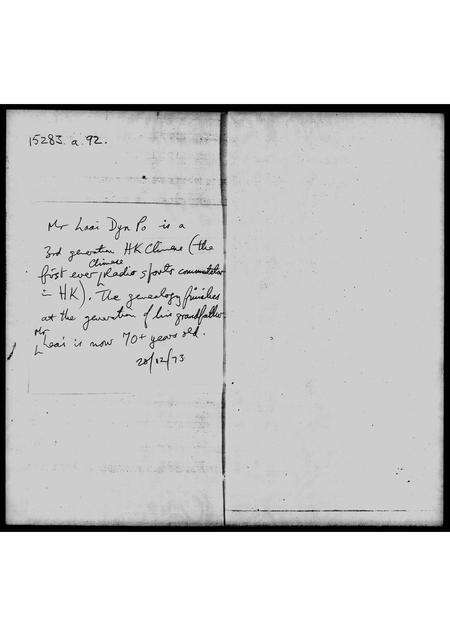 15283. a. 92.
Mr Laai Dyn Po is a
3rd generation HK Chinese (the
Chinese
first ever Radio sports commutator
in HK). The genealogy finishes
at the generation of his grandfather.
Mr
Leai is now 70+ years old.
28/12/73